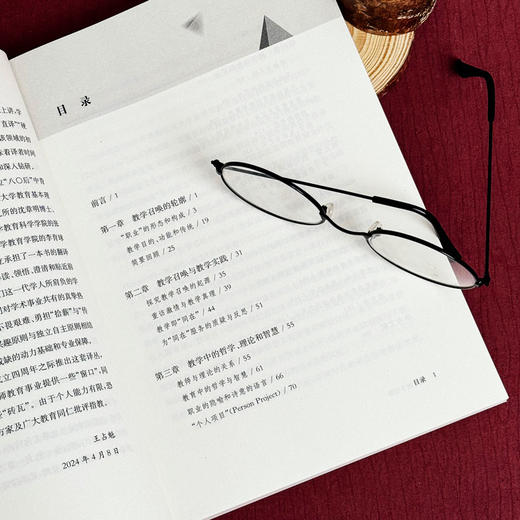 上讲,学
直译”“硬
该领域的初
味着译者时间
和深入钻研。
“八〇后”中青
大学教育基本理
究所的沈章明博士、
学教育科学学院的张
大学教育学院的李育球
立承担了一本书的翻译
读、领悟、澄清和贴近前
们这一代学人所肩负的学
对学术事业共有的真挚热
不畏艰难、勇担“拾薪”与“传
兴趣原则与独立自主原则相结
或缺的动力基础和专业保障。
立四周年之际推出这套译丛,
师教育事业提供一些“窗口”,同
些“砖瓦”。由于个人能力有限,恐
方家及广大教育同仁批评指教。
王占魁
2024年4月8日
目 录
前言 / 1
第一章 教学召唤的轮廓 / 1
“职业”的形态和构成 / 5
教学目的、功能和传统 / 19
简要回顾 / 25
第二章 教学召唤与教学实践 / 31
探究教学召唤的起源 / 35
重访激情与教学真理 / 39
教学即“同在” / 44
为“同在”服务的质疑与反思 / 51
第三章 教学中的哲学、理论和智慧 / 55
教师与理论的关系 / 55
教育中的哲学与智慧 / 61
职业的隐喻和诗意的语言 / 66
“个人项目”(Person Project) / 70
目录 1